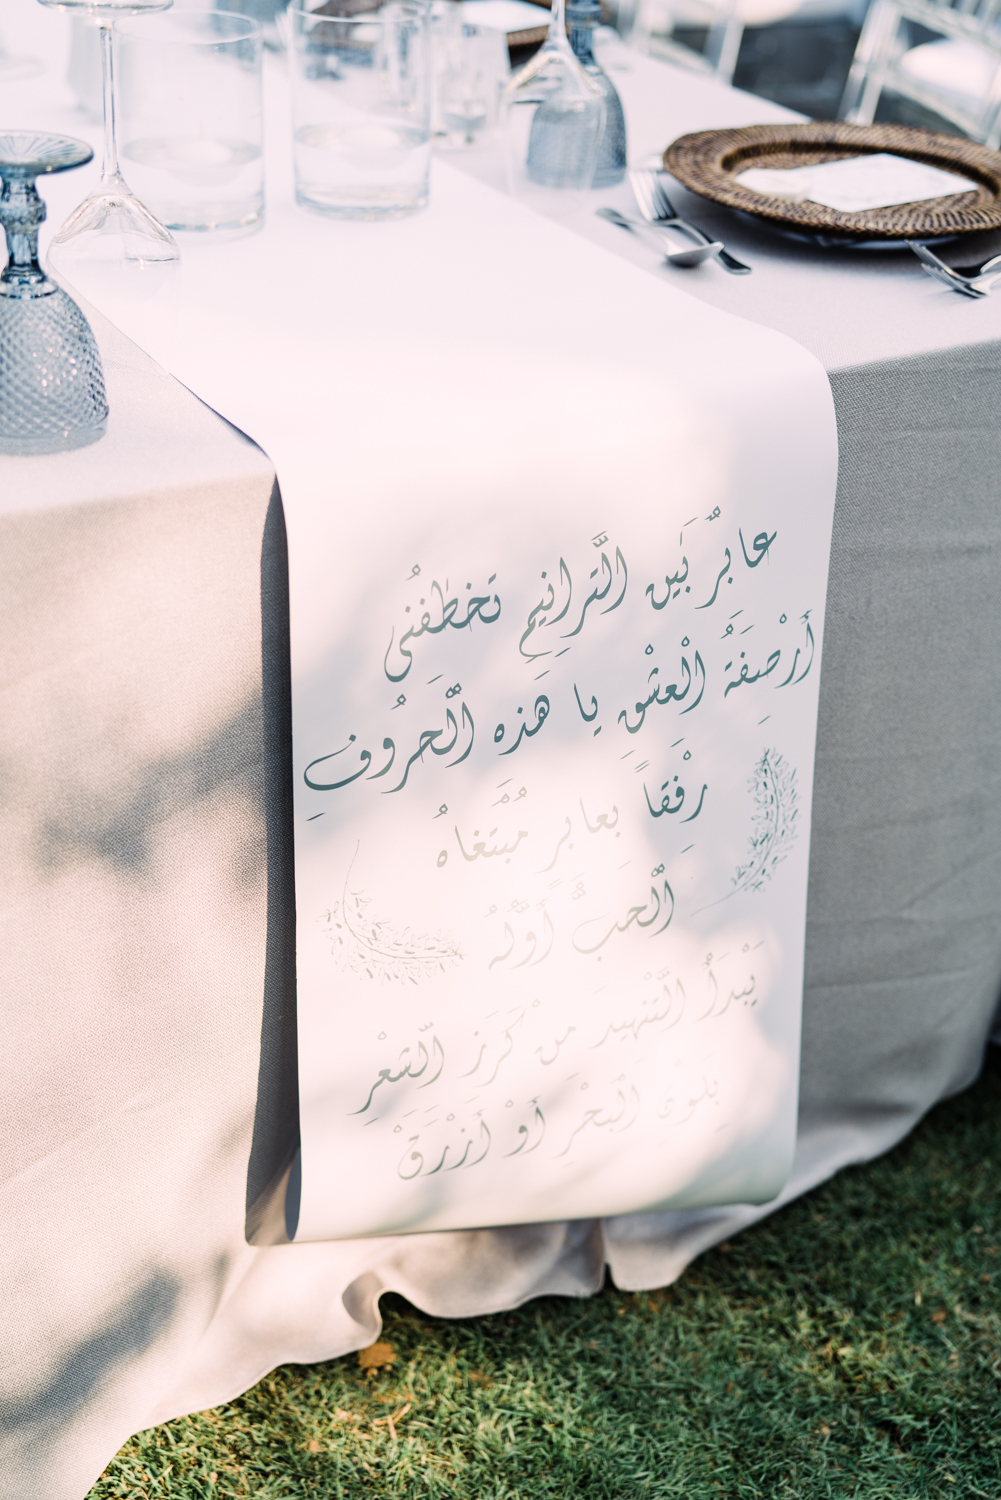 عابرٌ بَين التَّرانيمِ تخطفُني
أَرْصِفَةُ الْعشْقِ يا هَذه الْحَروُفِ
رِفْقاً بعابرٍ مُبْتَغاهُ
الْحَبُّ أَوَّلُه
يَبْدَأُ التَّنْهيدَ منْ كَرَزِ الشّعْرِ
بِلَوْنِ الْبَحْرِ أَوْ أَزْرَقْ